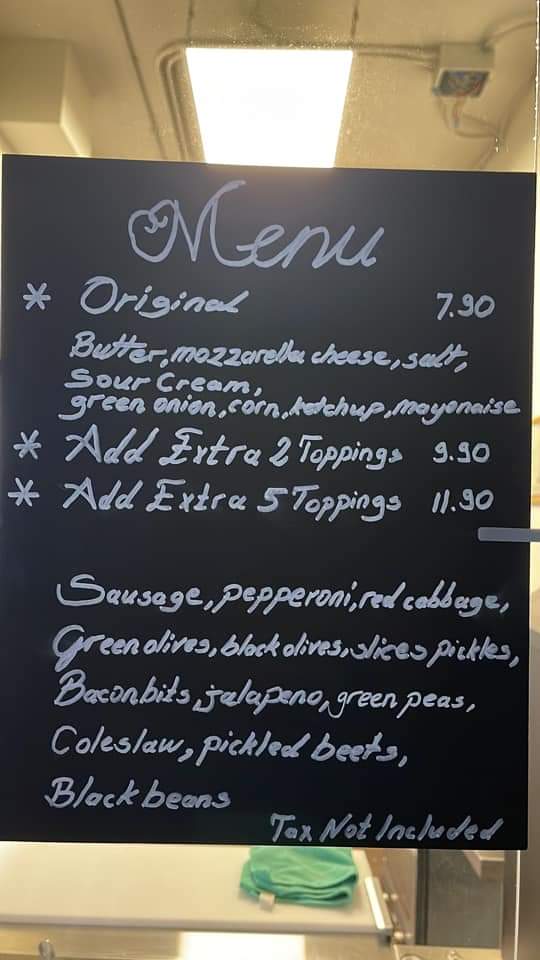 Menu
* Original 7.90
Butter, mozzarella cheese, salt,
Sour Cream,
green onion, corn, ketchup, mayonaise
* Add Extra 2 Toppings 9.90
* Add Extra 5 Toppings 11.90
Sausage, pepperoni, red cabbage,
Green olives, black olives, slices pickles,
Bacon bits, jalapeno, green peas,
Coleslaw, pickled beets,
Black beans
Tax Not Included